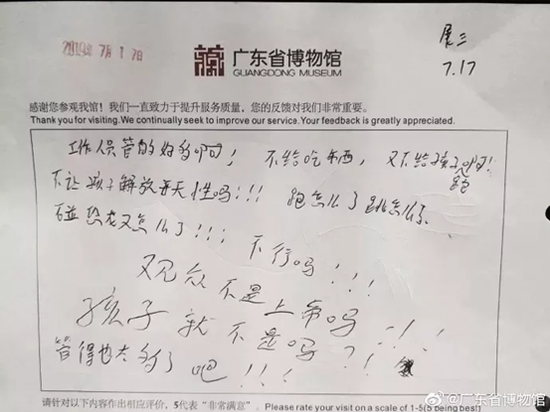 2019年7月17日
广东省博物馆
GUANGDONG MUSEUM
展三
7.17
感谢您参观我馆！我们一直致力于提升服务质量，您的反馈对我们非常重要。
Thank you for visiting.We continually seek to improve our service.Your feedback is greatly appreciated.
工作人员管的好多啊！不给吃东西，又不给孩子跑啊！
不让孩子解放天性吗！！！跑怎么了跳怎么了
碰恐龙又怎么了！！！
不行吗！！！
观众不是上帝吗！！！
孩子就不是吗？！！
管得也太多了吧！！！
请针对以下内容作出相应评价，5代表“非常满意”。Please rate your visit on a scale of 1-5(5 being best)
@广东省博物馆